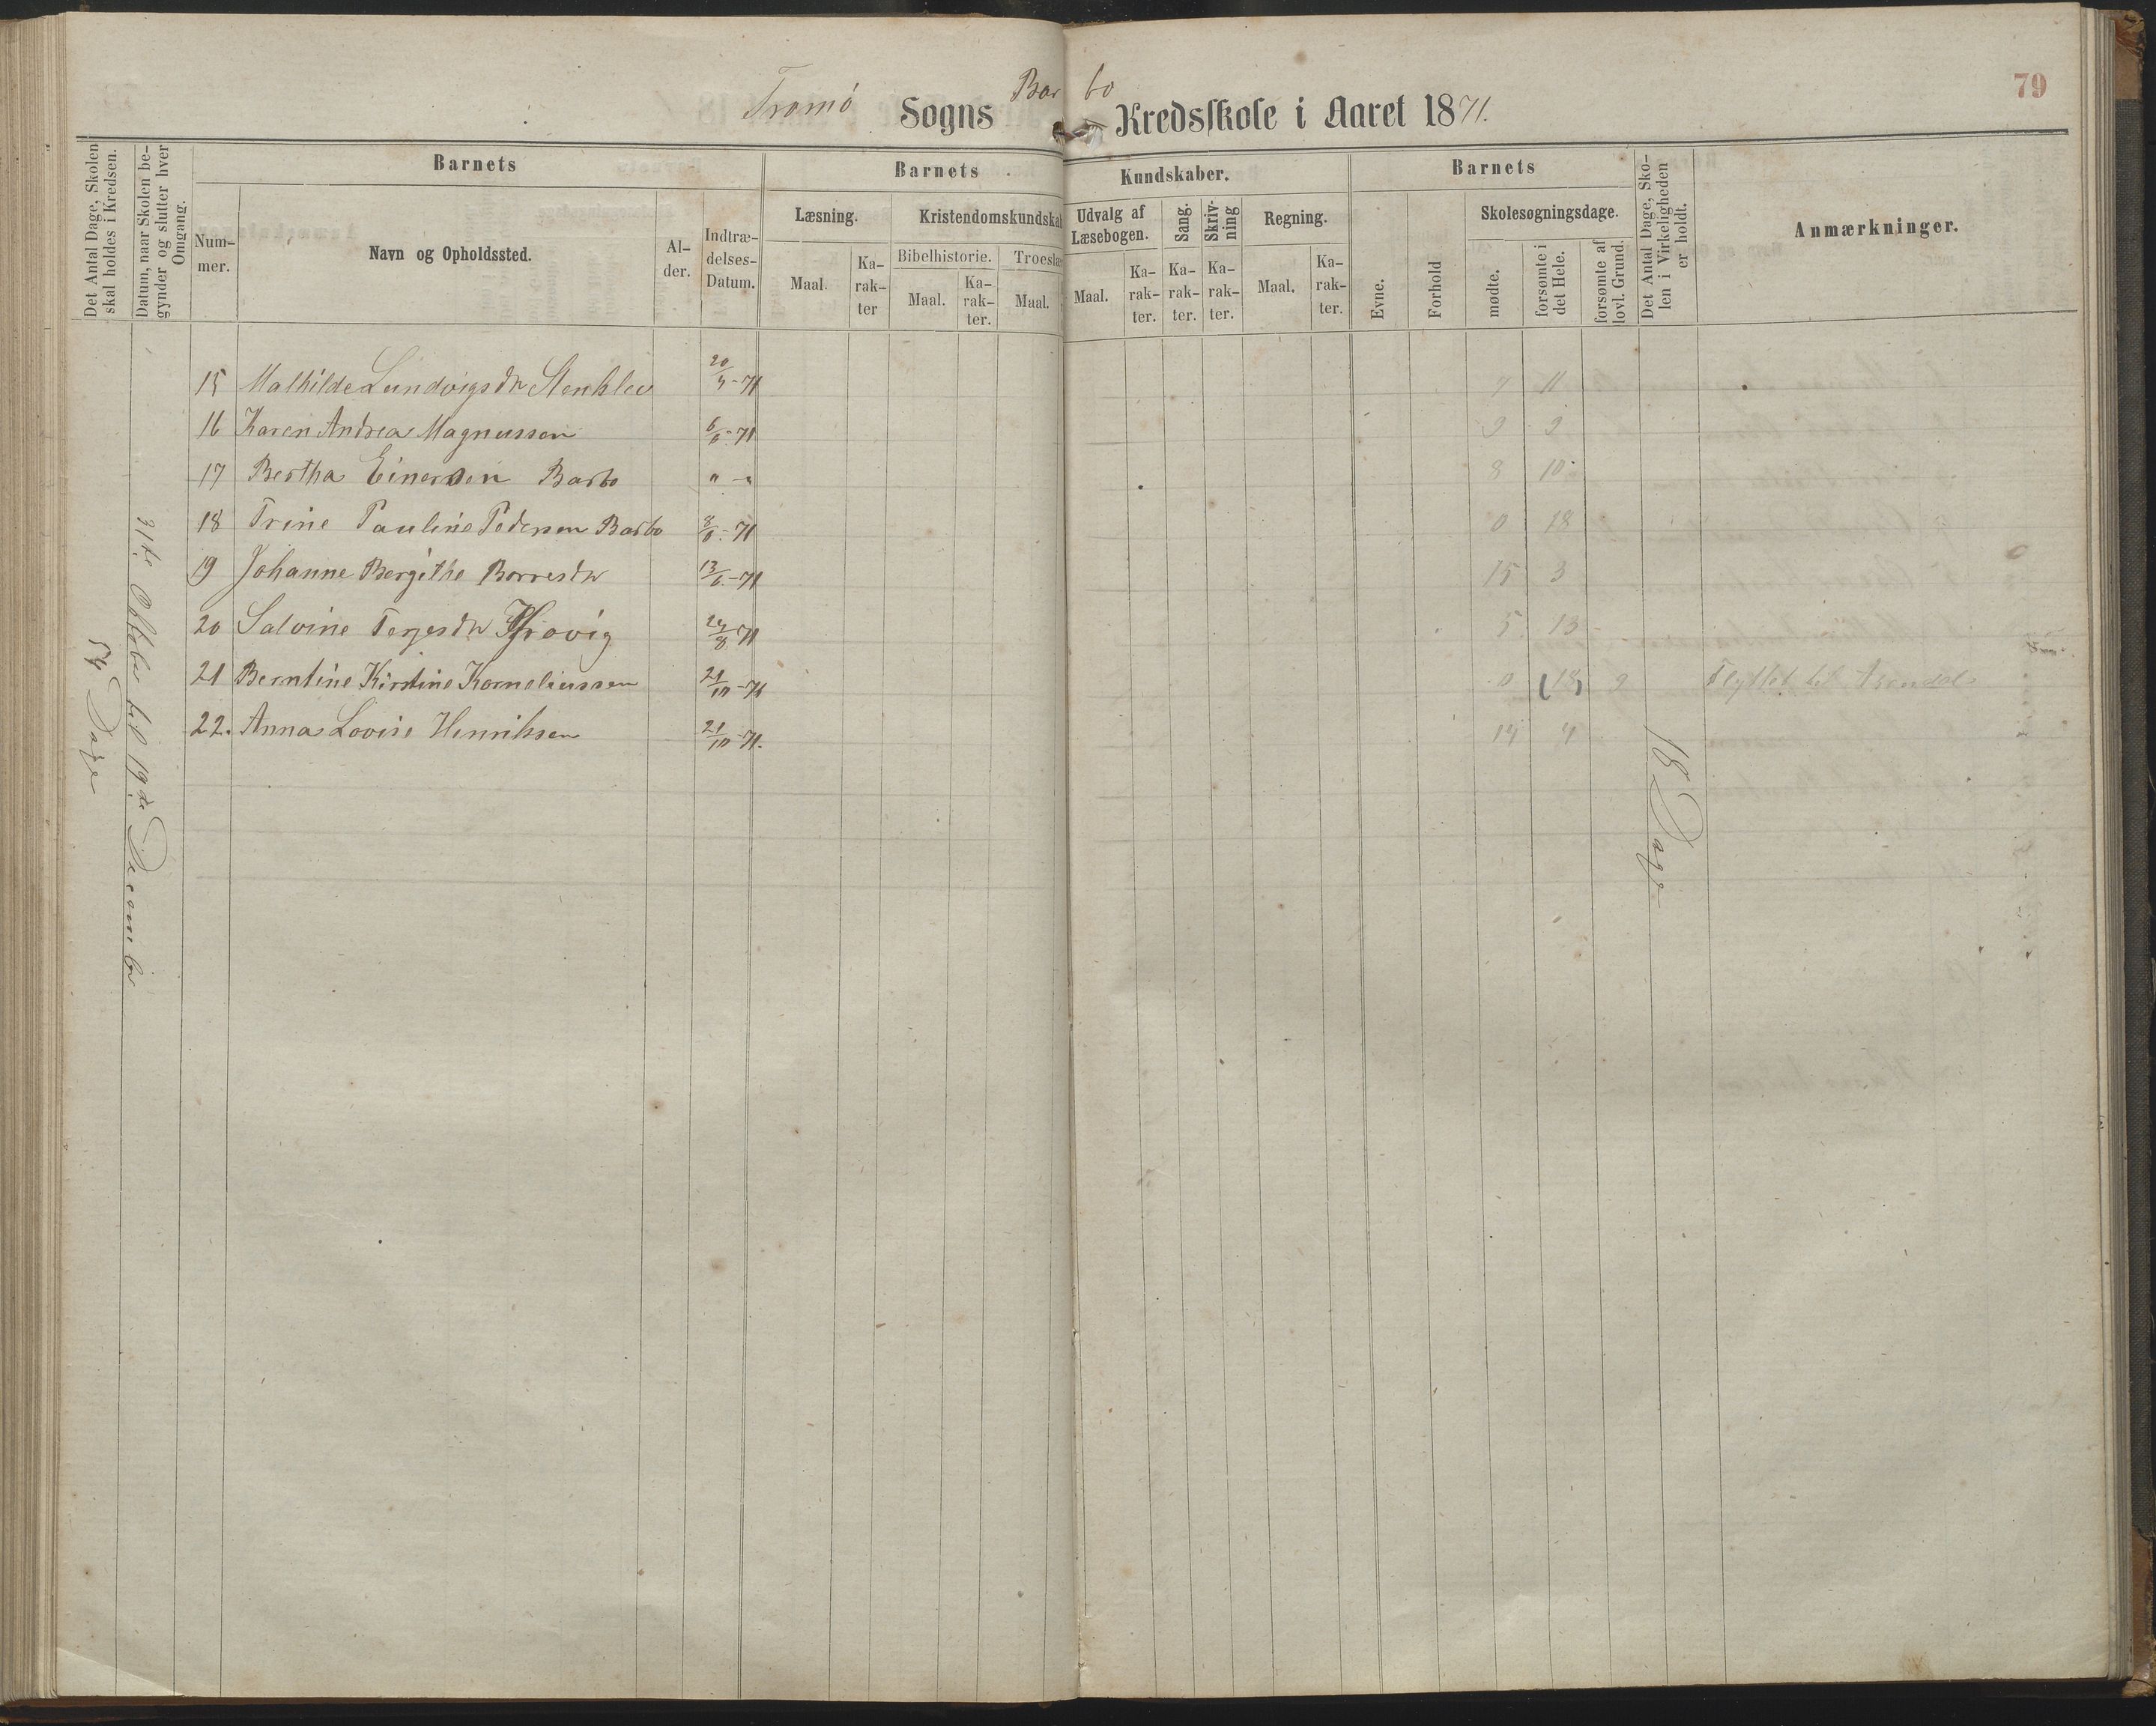 79
Tromø Sogns Barbo Kredsskole i Aaret 1871.
Det Antal Dage, Skolen skal holdes i Kredsen.
Datum, naar Skolen begynder og slutter hver Omgang.
Barnets
Num-
mer.
Navn og Opholdssted.
Al-
der.
Indtræ-
delses-
Datum.
Barnets Kundskaber.
Læsning.
Maal.
Ka-
rak-
ter
Kristendomskundskab
Bibelhistorie.
Maal.
Ka-
rak-
ter.
Troeslæ
Maal.
Udvalg af
Læsebogen.
Maal.
Ka-
rak-
ter.
Sang.
Ka-
rak-
ter.
Skriv-
ning
Ka-
rak-
ter.
Regning.
Maal.
Ka-
rak-
ter.
Barnets
Evne.
Forhold
Skolesøgningsdage.
mødte.
forsømte i
det Hele.
forsømte af
lovl. Grund.
Det Antal Dage, Sko-
len i Virkeligheden
er holdt.
Anmærkninger.
54 Dage
31te Oktober til 19de December
15 Mathilde Lundvigsdtr Stenklev 20/4-71 7 11
16 Karen Andrea Magnussen 6/6-71 9 9
17 Bertha Einersen Barbo " - " 8 10
18 Trine Pauline Pedersen Barbo 8/6-71 0 18
19 Johanne Bergithe Borresdtr 13/6-71 15 3
20 Salvine Terjesdtr 71 5 13
21 Berntine Kirstine Korneliussen 21/10-71 0 (18) 9 Flyttet til Arendal
22. Anna Lovise Henriksen 21/10-71. 14 4
18 Dage